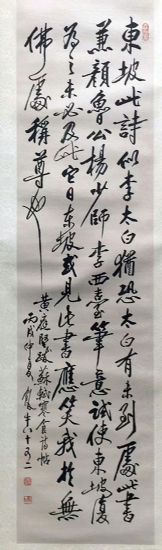 東坡此詩似李太白猶恐太白有未到處此書
兼顏魯公楊少師李西臺筆意試使東坡復
為之未必及此它日東坡或見此書應笑我於無
佛處稱尊也
黃庭堅跋蘇軾寒食詩帖
丙戌仲夏 年八十又二